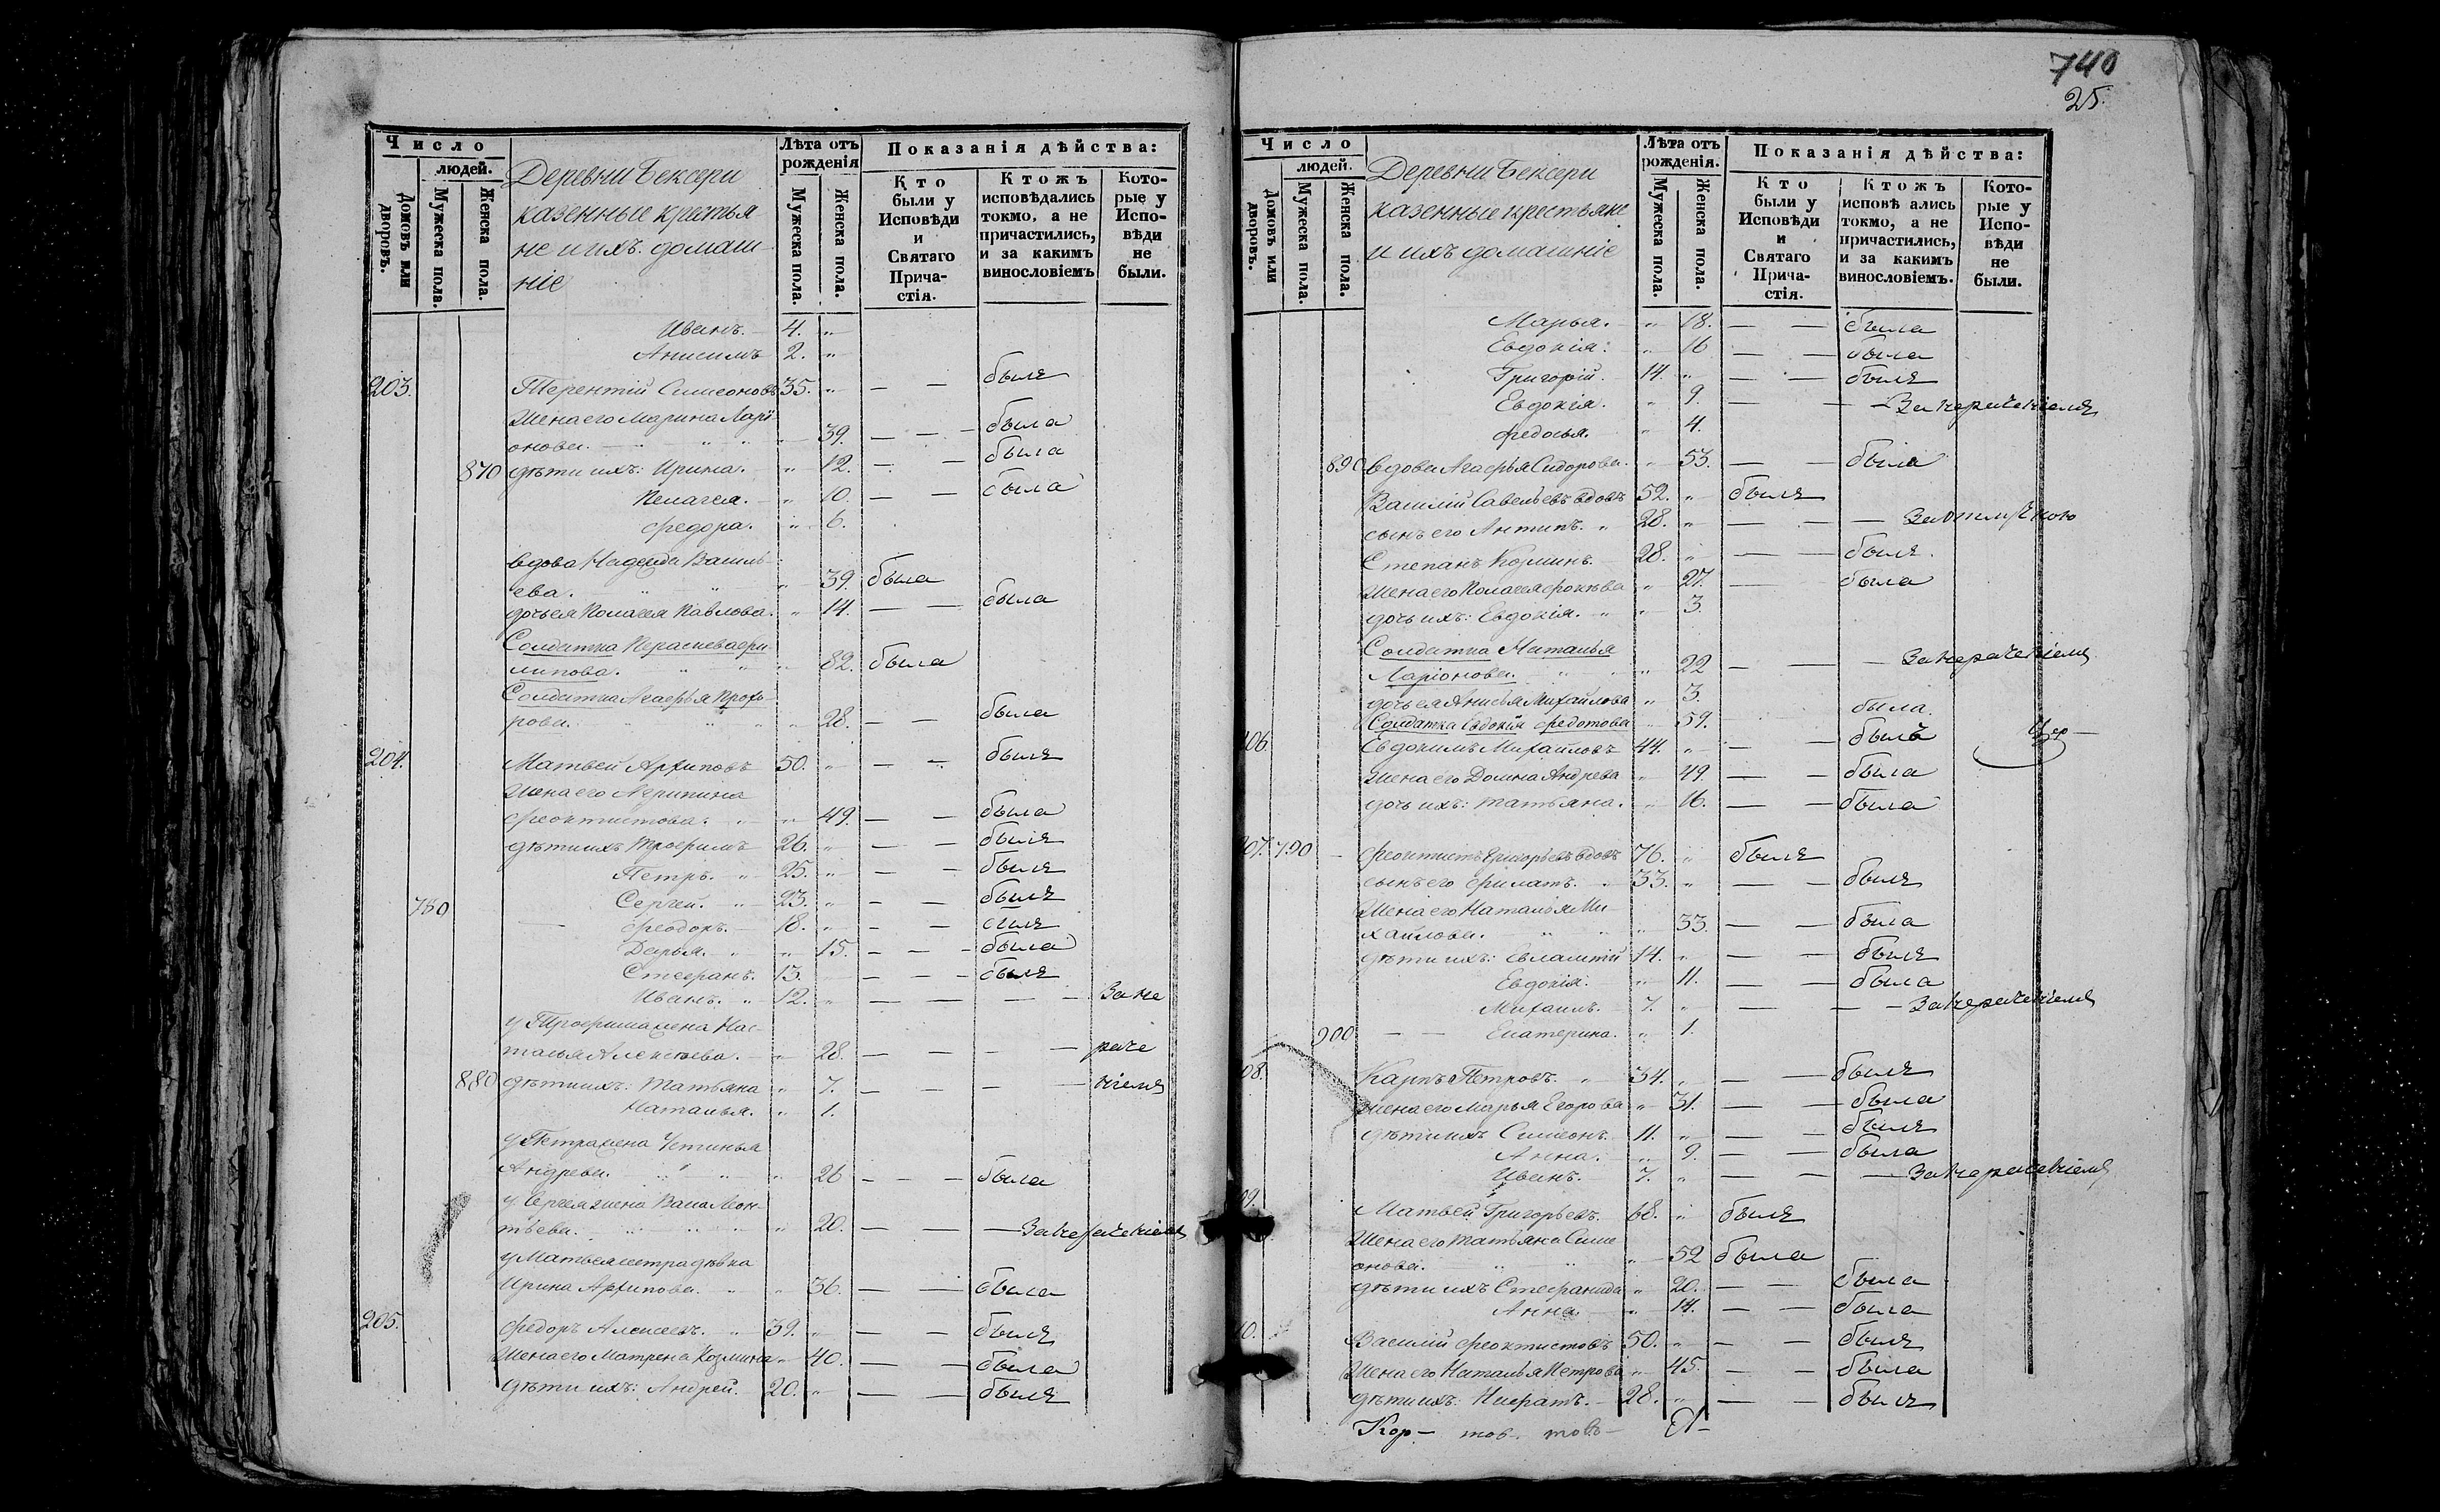 Число
людей.
Домовъ или дворовъ.
Мужеска пола.
Женска пола.
Деревни Бексери
казенные крестья-
не и ихъ домаш-
ніе
Лѣта отъ рожденія
Мужеска пола.
Женска пола.
Показанія дѣйства:
Кто были у Исповѣди и Святаго Прича-стія.
Ктожъ исповѣдались токмо, а не причастились, и за какимъ винословіемъ
Кото-рые у Испо-вѣди не были.
Иванъ. 4. „
Анисимъ 2. „
203. Терентій Симеоновъ 35. „ — — былъ
Жена его Марина Ларі-
онова. „ 39. — — былa
870 дѣти ихъ: Ирина. „ 12. — — была
Пелагея. „ 10. — — была
Федора. „ 6.
вдова Надежда Василь-
ева. „ 39. была
дочь ея Полагея Павлова. „ 14. — — была
Солдатка Параскева Фи-
липова. „ 82. была
Солдатка Агафья Прохо-
рова. „ 28. — — была
204. Матвей Архиповъ 50. „ — — былъ
Жена его Агрипина
Феоктистова. „ 49. — — была
дѣти ихъ Трофимъ 26. „ — — былъ
Петръ. 25. „ — — былъ
780 Сергей. 23. „ — — былъ
Феодоръ. 18. „ — — былъ
Дарья. „ 15. — — была
Стефанъ. 13. — — былъ
Иванъ. 12. „ — — — За не
у Трофима жена Нас-
тасья Алексѣева. „ 28. — — — раче
880 дѣти ихъ: Татьяна „ 7. — — — ніемъ
Наталья. „ 1.
у Петра жена Устинья
Андрева. „ 26 — — была
у Сергея жена Васса Леон-
тьева. „ 20. — — — За нераченіемъ
у Матвея сестра дѣвка
Ирина Архипова. „ 36. — — была
205. Федоръ Алексеевъ. 39. „ — — былъ
Жена его Матрена Козмина „ 40. — — была
дѣти ихъ: Андрей. 20. „ — — былъ
740
25.
Число
людей.
Домовъ или дворовъ.
Мужеска пола.
Женска пола.
Деревни Бексери
казенные крестьяне
и ихъ домашніе
Лѣта отъ рожденія.
Мужеска пола.
Женска пола.
Показанія дѣйства:
Кто были у Исповѣди и Святаго Прича-стія.
Ктожъ исповѣ ались токмо, а не причастились, и за какимъ винословіемъ.
Кото-рые у Испо-вѣди не были.
Марья. „ 18. — — была
Евдокія. „ 16 — — была
Григорій. 14. „ — — былъ
Евдокія. „ 9. — — — За нераченіемъ
Федосья. „ 4.
890 вдова Агафья Сидорова. „ 53. — — была
Василій Савельевъ вдовъ 52. „ былъ
сынъ его Антипъ. 28. „ — — — За отлучкою
Степанъ Козминъ. 28. „ — — былъ.
Жена его Полагея Фокѣева „ 27. — была
дочь ихъ: Евдокія. „ 3.
Солдатка Наталья
Ларіонова. „ 22 — — — За нераченіемъ
дочь ея Анисья Михайлова „ 3.
Солдатка Евдокія Федотова „ 59. была.
206. Евдокимъ Михайловъ 44. „ — — былъ
Жена его Домна Андрева „ 49. — — была
дочь ихъ: Татьяна. „ 16. — — была
207. 790 Феоктистъ Григорьевъ вдовъ 76. „ былъ
сынъ его Филатъ. 33. „ — — былъ
Жена его Наталья Ми-
хайлова. „ 33. — — была
дѣти ихъ: Евлампій 14. „ — — былъ
Евдокія. „ 11. — — была
Михаилъ. 7. „ — — — За нераченіемъ
900 — — Екатерина. „ 1.
08. Карпъ Петровъ. 34. „ — — былъ
Жена его Марья Егорова „ 31. — — была
дѣти ихъ Симеонъ. 11. „ — — былъ
Анна. „ 9. — — была
Иванъ. 7. „ — — — За нераченіемъ
09. Матвей Григорьевъ. 68. „ былъ
Жена его Татьяна Симе
онова. „ 52 была
дѣти ихъ Стефанида „ 20. — — была
Анна. „ 14. — — была
10. Василій Феоктистовъ 50. „ — — былъ
Жена его Наталья Петрова „ 45. — — была
дѣти ихъ: Нифатъ. 28. „ — — былъ